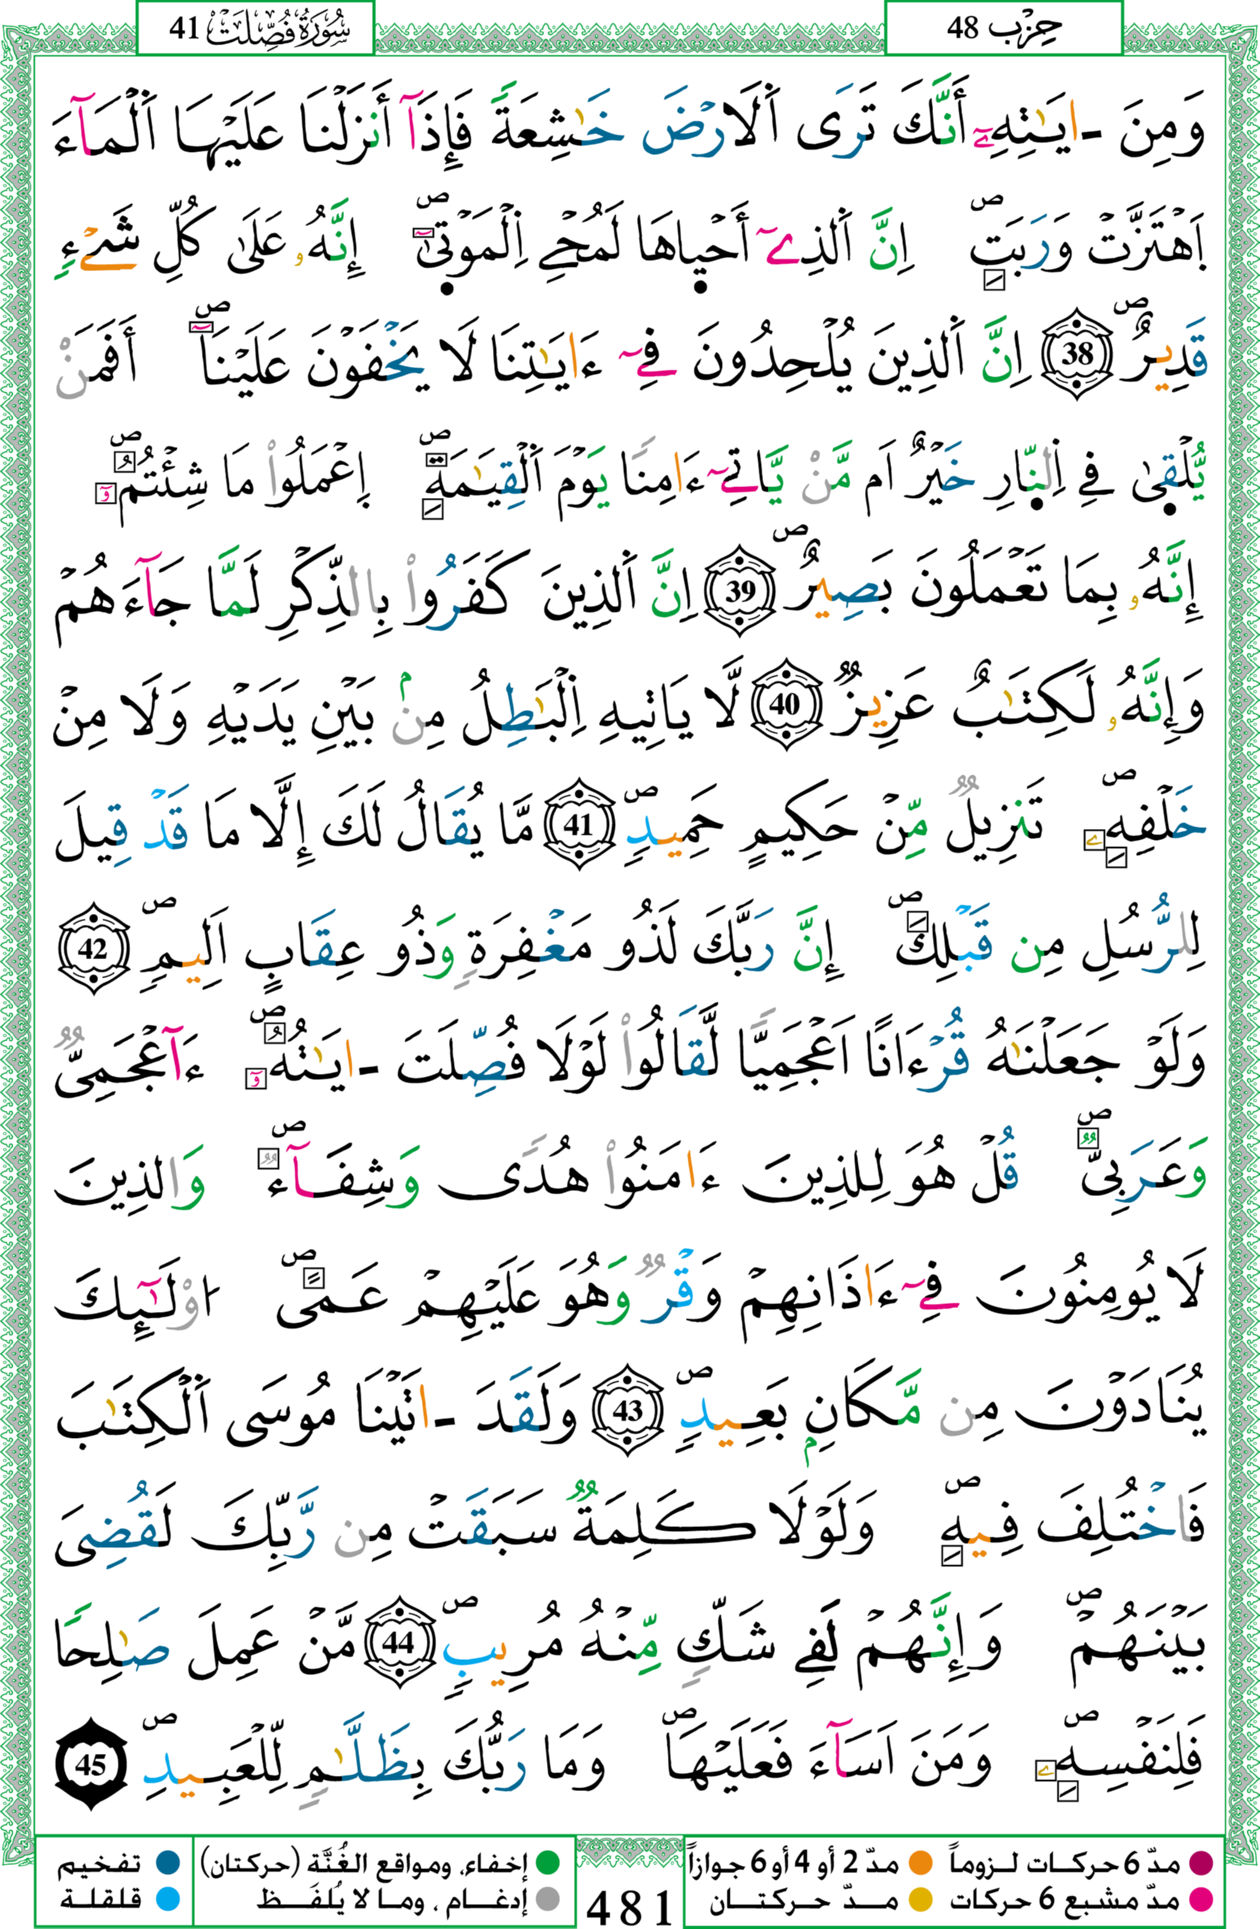 سُورَةُ فُصِّلَتْ 41
حِزْب 48
وَمِنَ ـ ايَٰتِهِۦٓ أَنَّكَ تَرَى اَ۬لَارْضَ خَٰشِعَةٗ فَإِذَآ أَنزَلْنَا عَلَيْهَا اَ۬لْمَآءَ
اَ۪هْتَزَّتْ وَرَبَتِۖ اِنَّ اَ۬لذِےٓ أَحْي۪اهَا لَمُحْيِ اِ۬لْمَوْت۪يٰٓۖ إِنَّهُۥ عَلَىٰ كُلِّ شَےْءٖ
قَدِيرٌۖ 38 اِنَّ اَ۬لذِينَ يُلْحِدُونَ فِےٓ ءَايَٰتِنَا لَا يَخْفَوْنَ عَلَيْنَآۖ أَفَمَنْ
يُّلْق۪يٰ فِے اِ۬لنّ۪ارِ خَيْرٌ اَم مَّنْ يَّاتِےٓ ءَامِناٗ يَوْمَ اَ۬لْقِيَٰمَةِۖ اِ۪عْمَلُواْ مَا شِئْتُمُۥٓۖ
إِنَّهُۥ بِمَا تَعْمَلُونَ بَصِيرٌۖ 39 اِنَّ اَ۬لذِينَ كَفَرُواْ بِالذِّكْرِ لَمَّا جَآءَهُمْ
وَإِنَّهُۥ لَكِتَٰبٌ عَزِيزٞ 40 لَّا يَاتِيهِ اِ۬لْبَٰطِلُ مِنۢ بَيْنِ يَدَيْهِ وَلَا مِنْ
خَلْفِهِۦۖ تَنزِيلٞ مِّنْ حَكِيمٍ حَمِيدٖۖ 41 مَّا يُقَالُ لَكَ إِلَّا مَا قَدْ قِيلَ
لِلرُّسُلِ مِن قَبْلِكَۖ إِنَّ رَبَّكَ لَذُو مَغْفِرَةٖ وَذُو عِقَابٍ اَلِيمٖۖ 42
وَلَوْ جَعَلْنَٰهُ قُرْءَاناً اَعْجَمِيّاٗ لَّقَالُواْ لَوْلَا فُصِّلَتَ ـ ايَٰتُهُۥٓۖ ءَآعْجَمِيّٞ
وَعَرَبِيّٞۖ قُلْ هُوَ لِلذِينَ ءَامَنُواْ هُدىٗ وَشِفَآءٞۖ وَالذِينَ
لَا يُومِنُونَ فِےٓ ءَاذَانِهِمْ وَقْرٞ وَهُوَ عَلَيْهِمْ عَمىًۖ ا۟وْلَٰٓئِكَ
يُنَادَوْنَ مِن مَّكَانِۢ بَعِيدٖۖ 43 وَلَقَدَ ـ اتَيْنَا مُوسَى اَ۬لْكِتَٰبَ
فَاخْتُلِفَ فِيهِۖ وَلَوْلَا كَلِمَةٞ سَبَقَتْ مِن رَّبِّكَ لَقُضِيَ
بَيْنَهُمْۖ وَإِنَّهُمْ لَفِے شَكّٖ مِّنْهُ مُرِيبٖۖ 44 مَّنْ عَمِلَ صَٰلِحاٗ
فَلِنَفْسِهِۦۖ وَمَنَ اَسَآءَ فَعَلَيْهَاۖ وَمَا رَبُّكَ بِظَلَّٰمٖ لِّلْعَبِيدِۖ 45
مدّ 6 حركات لـزوماً
مدّ 2 أو 4 أو 6 جوازاً
إخفاء، ومواقع الغُنَّة (حركتان)
تفخيم
مدّ مشبع 6 حركات
مـدّ حـركتـــان
إدغـام ، ومـا لا يُلفَـظ
قلقلة
481